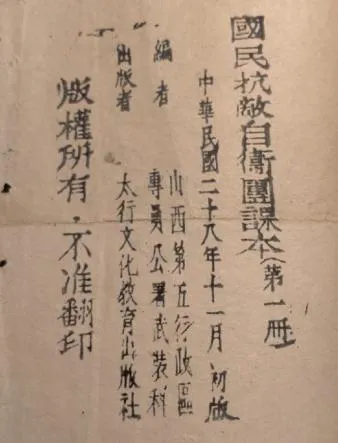 國民抗敵自衛團課本（第一冊）
中華民國二十八年十一月初版
編者 山西第五行政區
專員公署武裝科
出版者 太行文化教育出版社
版權所有．不准翻印